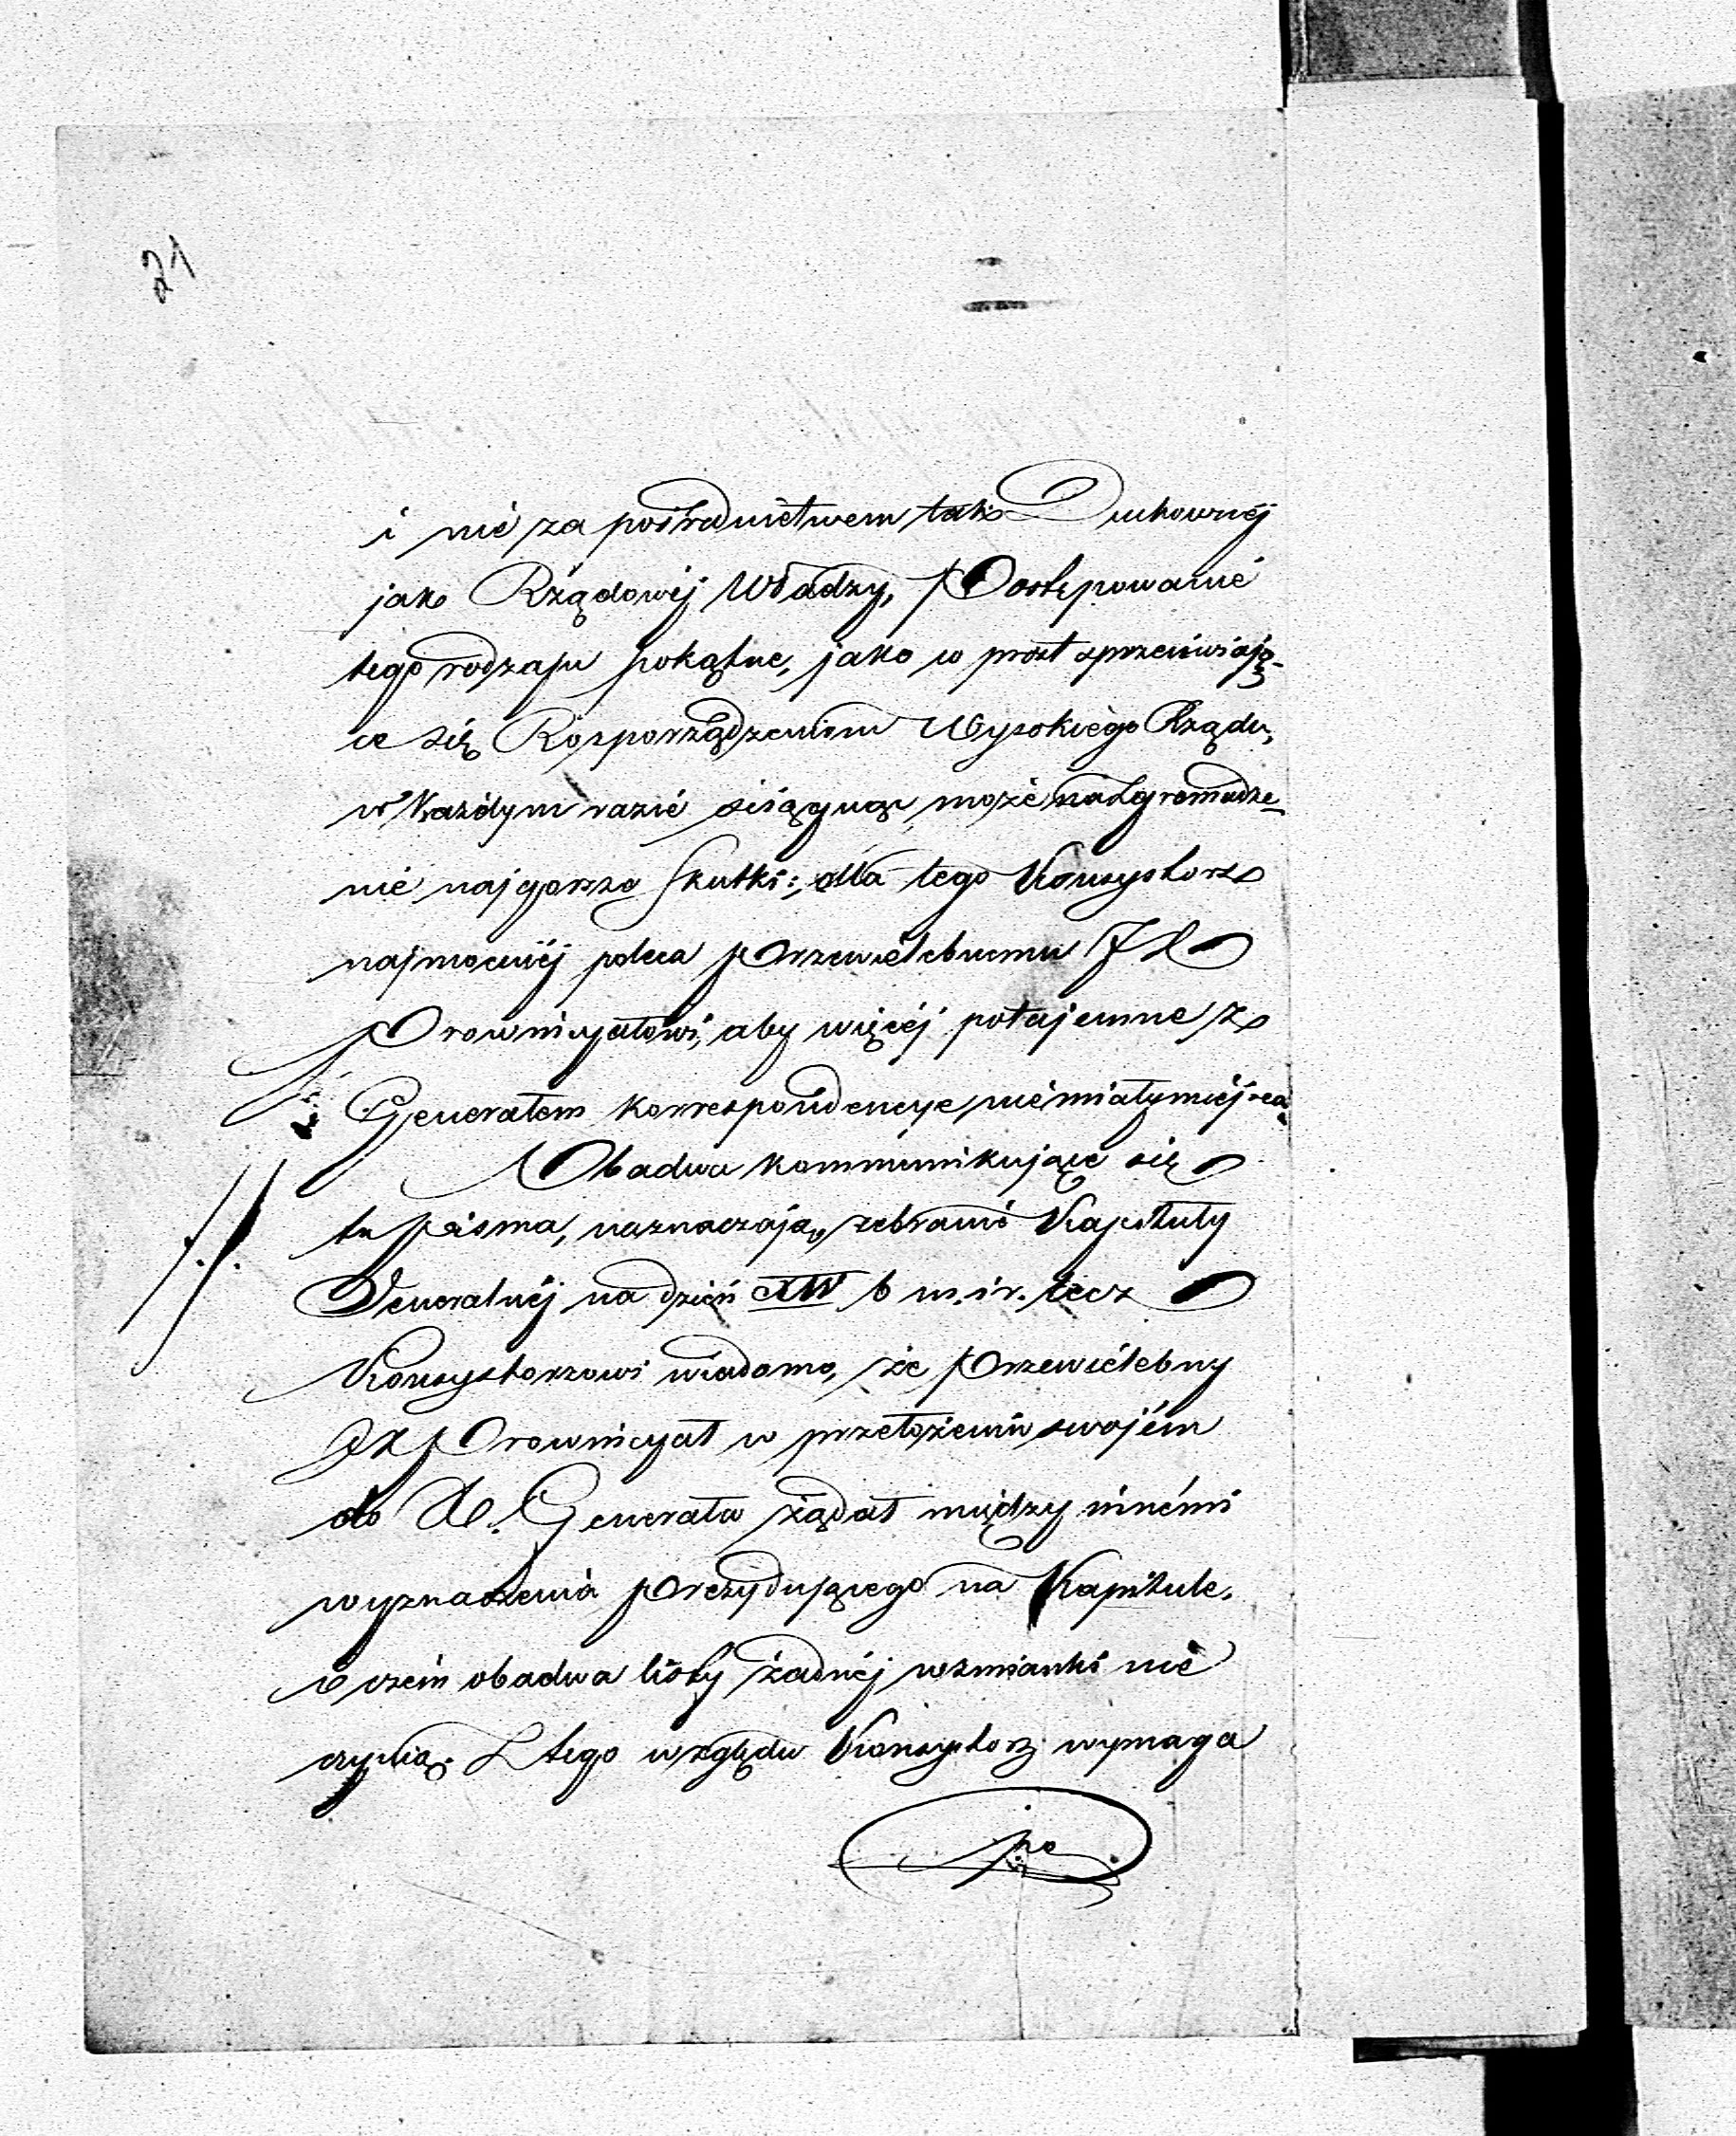 21
i nié za pośrednictwem tak Duchownéj
jako Rządowéj Władzy, Postępowanié
tego rodzaju pokątne, jako w prost sprzeciwiają-
ce się Rosporządzeniom Wysokiégo Rządu,
w każdym razié ściągnąć możé na Zgromadze-
nié najgorsze skutki: dla tego Konsystorz
najmocniéj poleca Przewiélebnemu JX
Prowincyałowi, aby więcéj potajemne z
Generałem korrespondencye niémiały miéjsca
Obadwa kommunikujące się
tu pisma, naznaczają zebranié Kapituły
Generalnéj na dzień XIV b m. i r. lecz
Konsystorzowi wiadomo, że Przewiélebny
JX Prowincyał w przełożeniu swojém
do X. Generała żądał między innémi
wyznaczenia Prezydującego na Kapitule,
o czém obadwa listy żadnéj wzmianki nié
czynią. Z tego względu Konsystorz wymaga